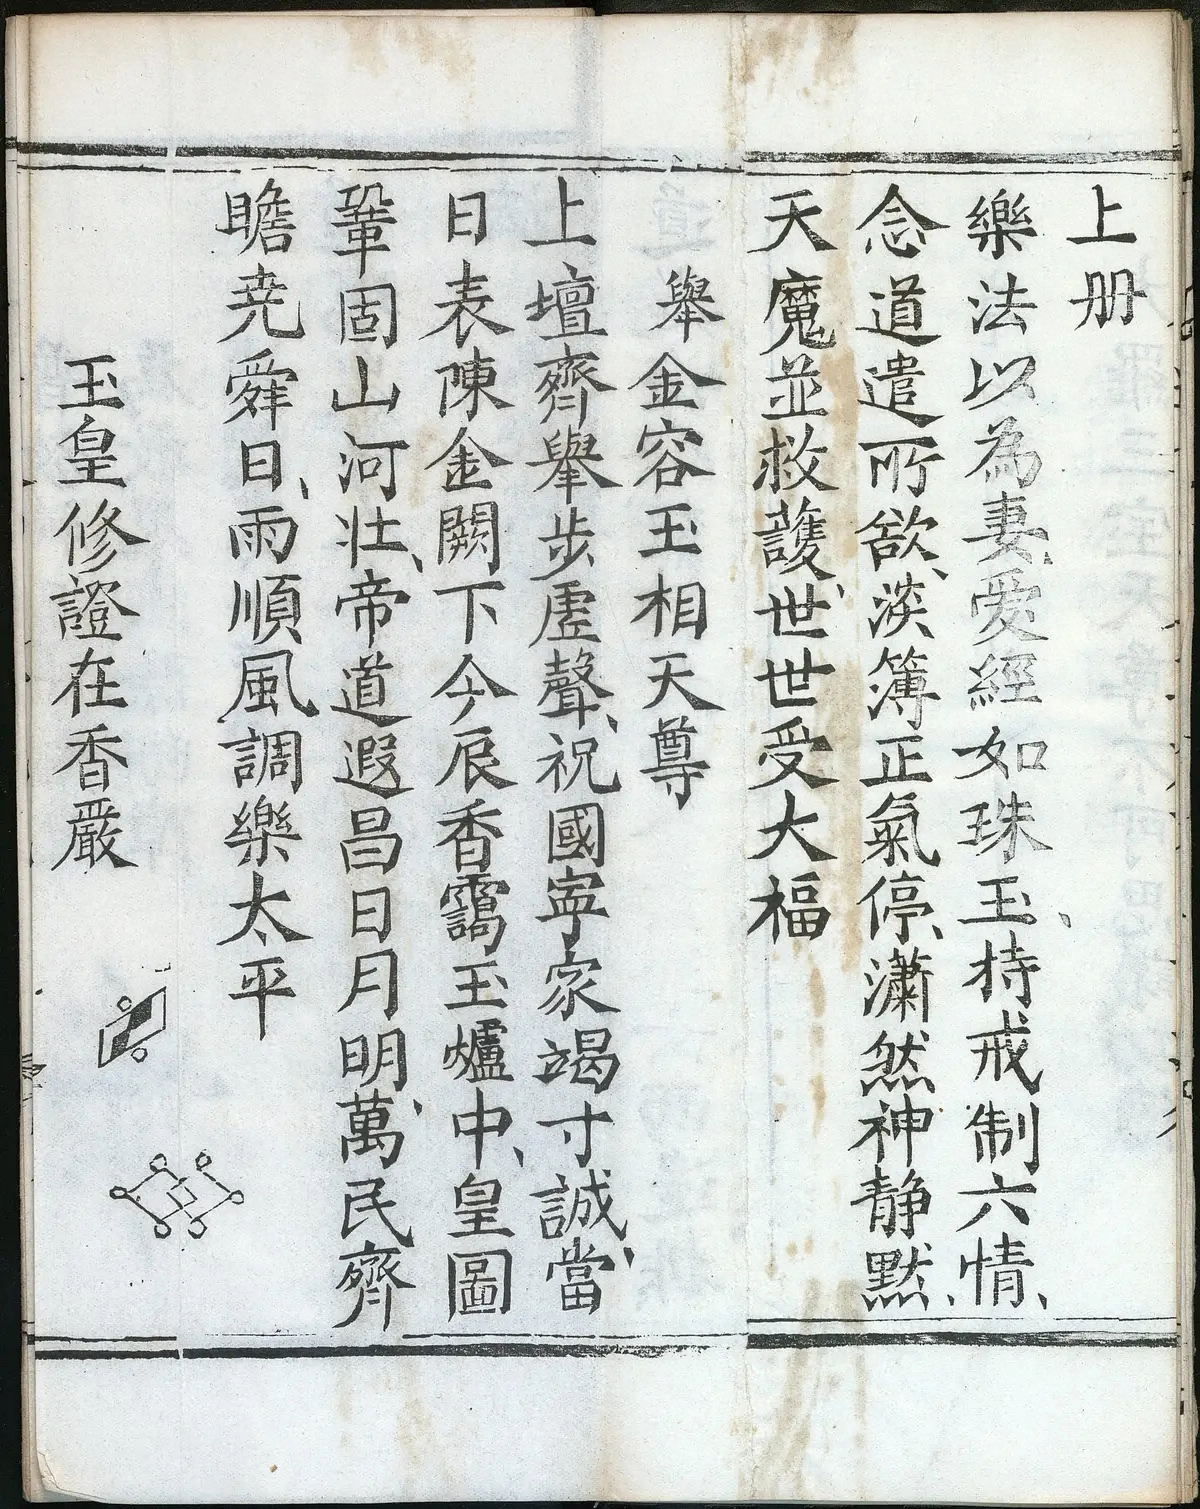 上册
樂法以為妻、愛經如珠玉、持戒制六情、
念道遣所欲、淡簿正氣停、瀟然神静默、
天魔並救護、世世受大福
舉金容玉相天尊
上壇齊舉步虛聲、祝國寧家竭寸誠、當
日表陳金闕下今辰香靄玉爐中、皇圖
鞏固山河壯、帝道遐昌日月明、萬民齊
瞻尭舜日、雨順風調樂太平
玉皇修證在香嚴